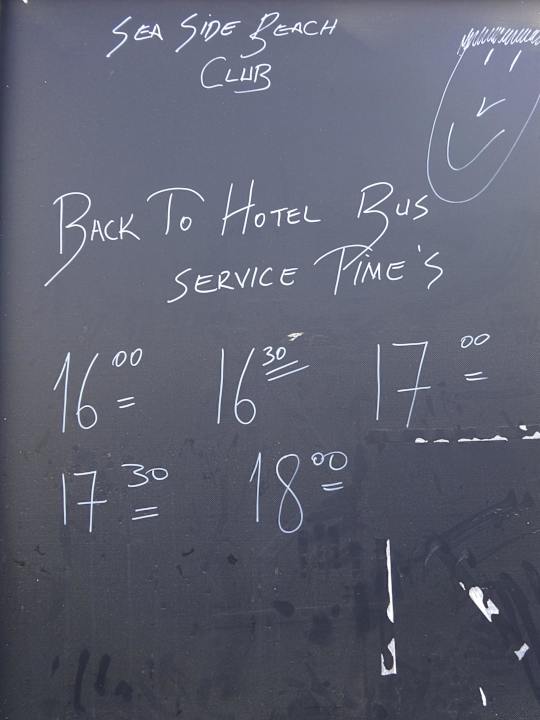 SEA SIDE BEACH
CLUB
BACK TO HOTEL BUS
SERVICE TIME'S
16 00 16 30 17 00
17 30 18 00